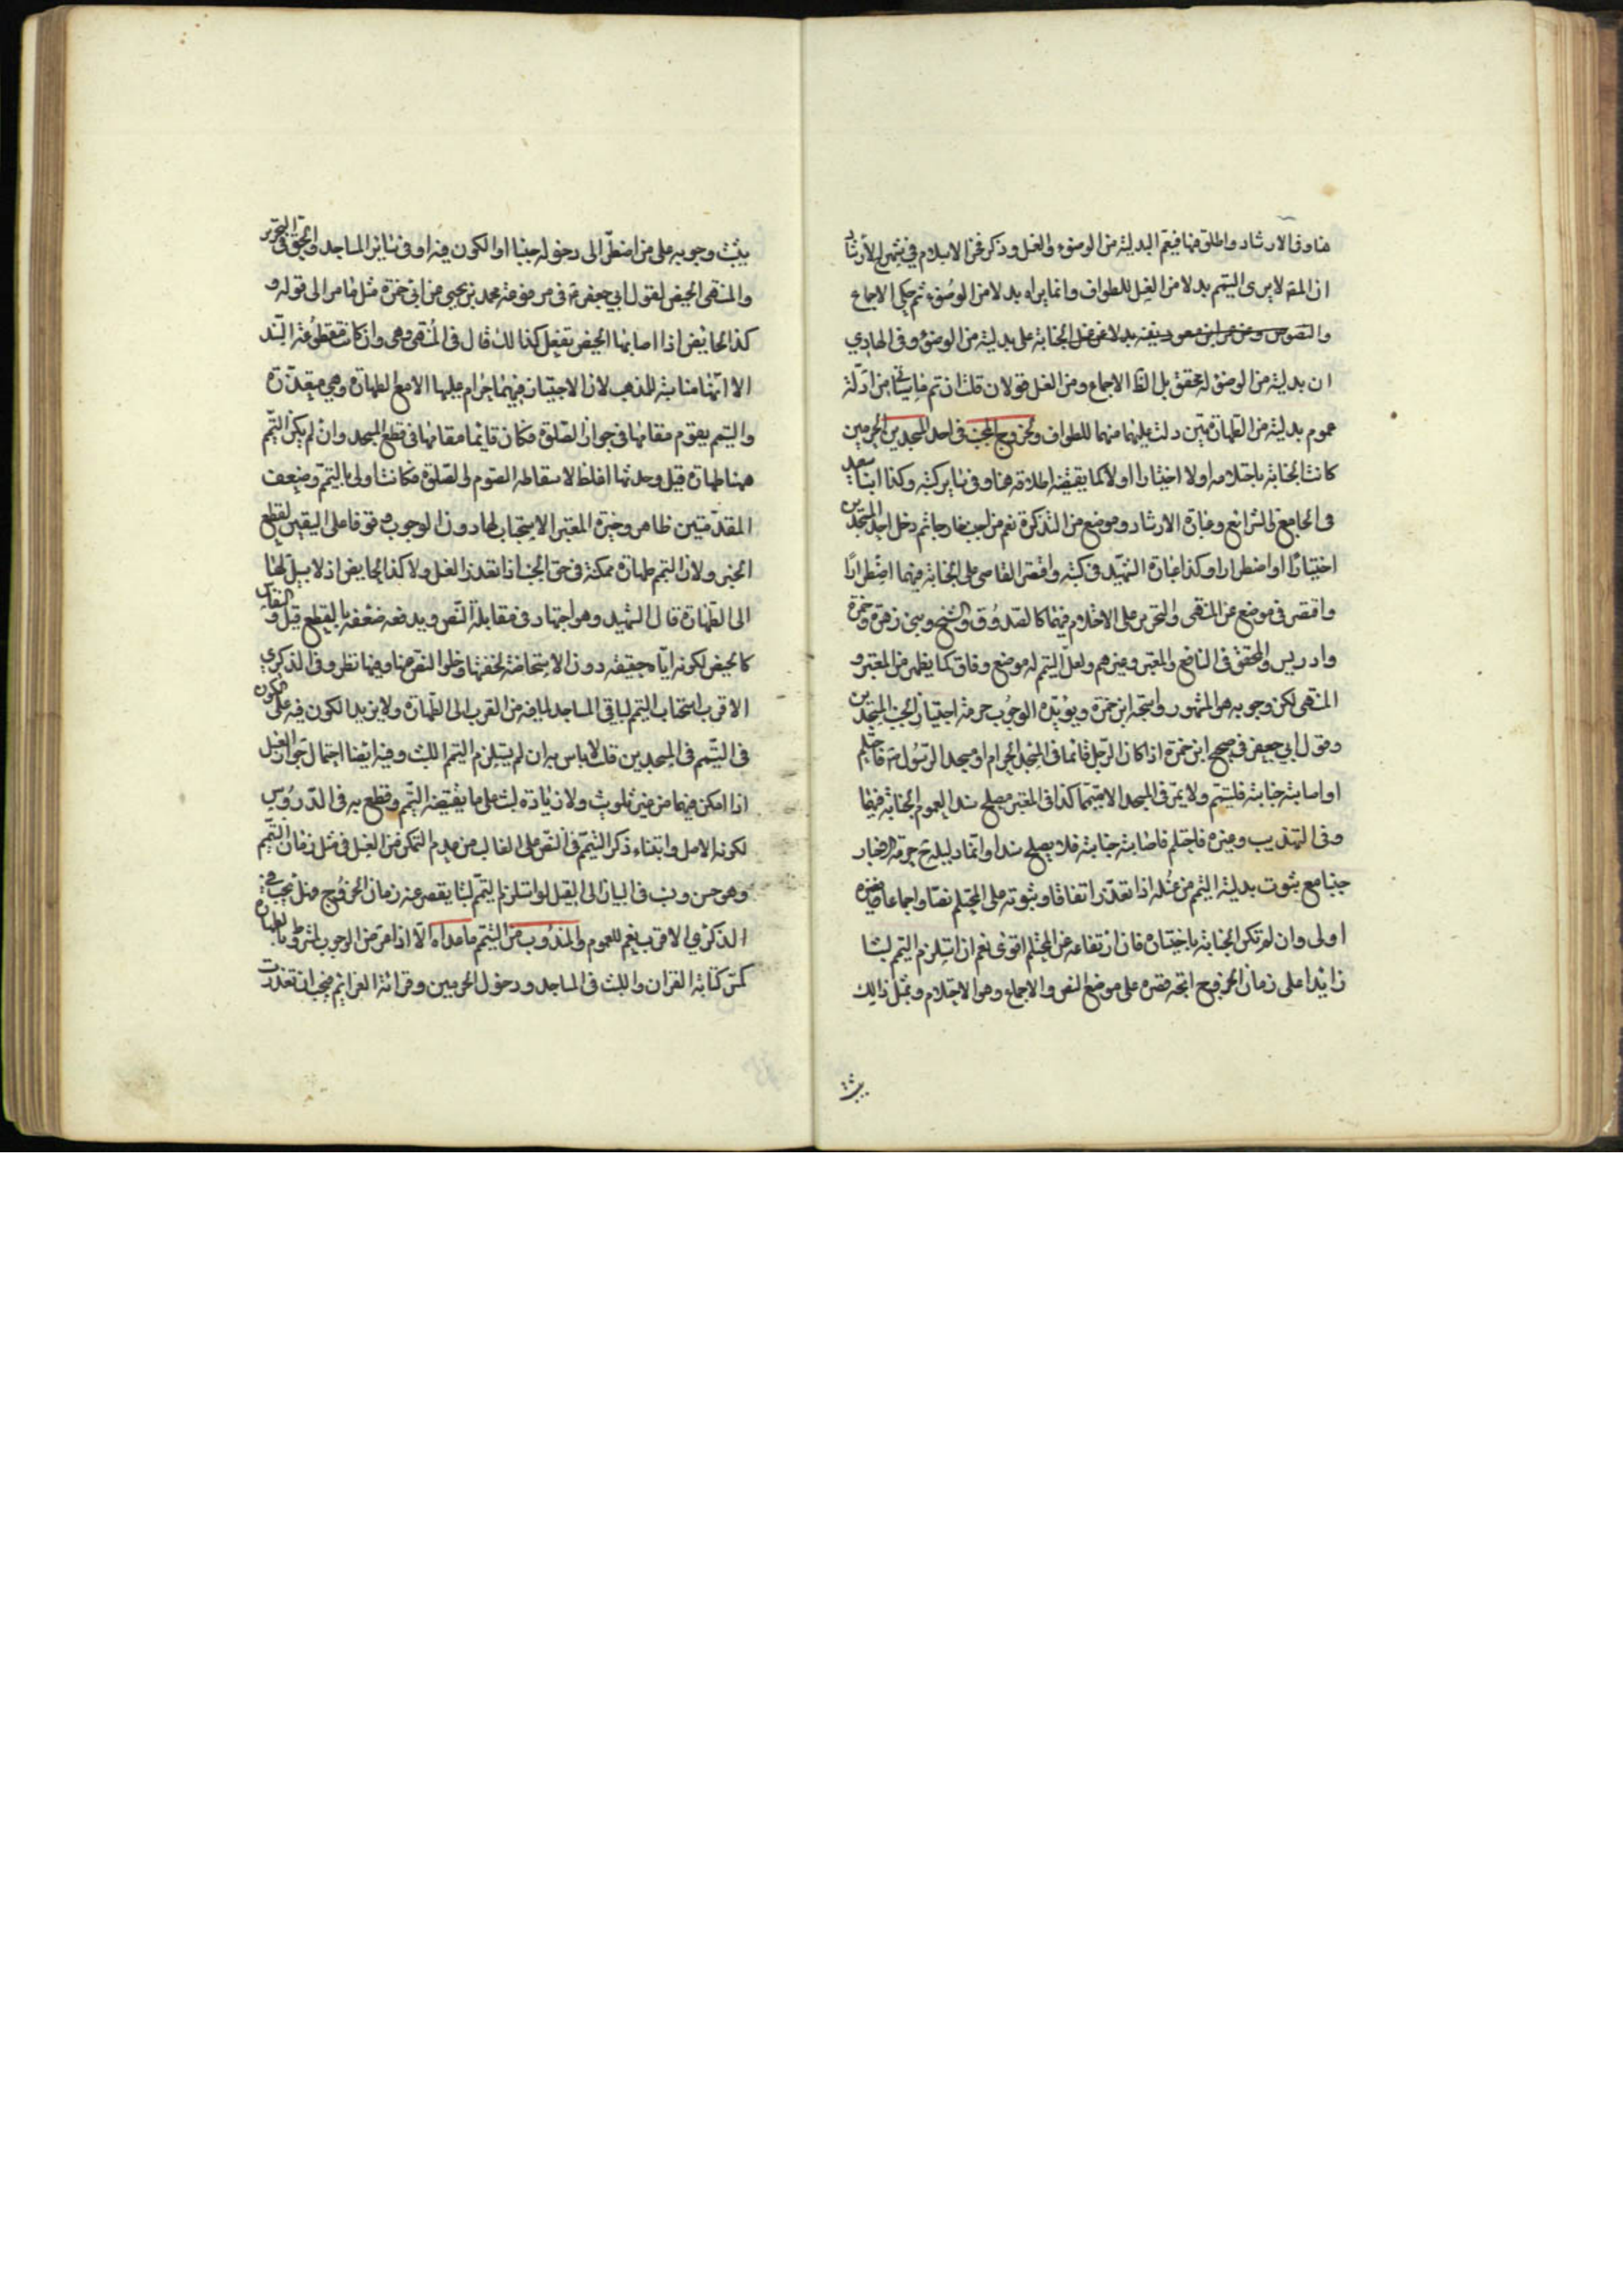 هنا وفى الارشاد واطلق فيها فيعم البدلية من الوضوء والغسل وذكر فخر الاسلام في شرح الارشاد
ان المص لا يرى التيمم بدلا من الغسل للطواف وانما يراه بدلا من الوضوء ثم حكى الاجماع
والنصوص على بدليته من الوضوء وفى الهادي
ان بدليته من الوضوء له محقق بل الظ الاجماع ومن الغسل قولان قلت ان تم ما سيأتي من ادلة
عموم بدليته من الطهارتين دلت عليها منهما للطواف ولخروج المجنب فى احد المسجدين الحرمين
كانت الجنابة باحتلام اولا اختيارا اولا كما يقتضيه اطلاقه هنا وفى سائر كتبه وكذا ابنا سعيد
فى الجامع والشرائع وعبارة الارشاد وموضع من التذكرة تعم من اجنب خارجا ثم دخل احد المسجدين
اختيارا او اضطرارا وكذا عبارة الشهيد فى كتبه واقتصر القاضى على الجنابة فيهما اضطرارا
واقتصر فى موضع من المنتهى والتحرير على الاحتلام فيهما كالصدوق والشيخ وبني زهرة وحمزة
وادريس والمحقق فى النافع والمعتبر وغيرهم ولعل التيمم له موضع وفاق كما يظهر من المعتبر و
المنتهى لكن وجوبه هو المشهور واستحبه ابن حمزة ويؤيده الوجوب حرمة اجتياز الجنب المسجدين
وقول ابي جعفر في صحيح ابن حمزة اذا كان الرجل نائما فى المسجد الحرام او مسجد الرسول ص فاحتلم
او اصابته جنابة فليتيمم ولا يمر فى المسجد الا متيمما كذا فى المعتبر فيصلح سندا لعموم الجنابة فيهما
وفى التهذيب وغيره فاحتلم فاصابته جنابة فلا يصلح سندا وانما دليله ح حرمة الاجتياز
جنبا مع ثبوت بدلية التيمم من غسله اذا تعذر اتفاقا وثبوته على المحتلم نصا واجماعا فغيره
اولى وان لم تكن الجنابة باختياره فان ارتفاعه من المحتلم اقوى نعم ان استلزم التيمم لبثا
زائدا على زمان الخروج اتجه قصره على موضع النص والاجماع وهو الاحتلام وبمثل ذلك
يثبت
يثبت وجوبه على من اضطر الى دخوله جنبا او الكون فيه او فى سائر المساجد والحق فى التحرير
والمنتهى الحيض لقول ابي جعفر ع فى مرفوعة محمد بن يحيى عن ابي حمزة مثل ما مر الى قوله و
كذا الحايض اذا اصابها الحيض تفعل كذلك قال فى المنتهى وهى وان كانت مقطوعة السند
الا انها مناسبة للمذهب لان الاجتياز فيهما حرام عليها الا مع الطهارة وهي متعذرة
والتيمم يقوم مقامها فى جواز الصلوة فكان قائما مقامها فى قطع المسجد وان لم يكن التيمم
ههنا طهارة قيل وحدثها اغلظ لاسقاطه الصوم والصلوة فكانت اولى بالتيمم وضعف
المقدمتين ظاهر وخيرة المعتبر الاستحباب لها دون الوجوب وقوفا على اليقين لقطع
الخبر ولان التيمم طهارة ممكنة فى حق الجنب اذا تعذر الغسل ولا كذا الحايض اذ لا سبيل لها
الى الطهارة قال الشهيد وهو اجتهاد فى مقابلة النص ويدفعه ضعفه بالقطع قيل والنفاس
كالحيض لكونه اياه حقيقة دون الاستحاضة لخفتها وخلو النص منها وفيهما نظر وفى الذكرى
الاقرب استحباب التيمم لباقى المساجد لما فيه من القرب الى الطهارة ولا يزيد الكون فيه على الكون
فى التيمم فى المسجدين قلت لا باس به ان لم يستلزم التيمم اللبث وفيه ايضا احتمال جواز الغسل
اذا امكن فيهما من غير تلويث ولا زيادة لبث على ما يقتضيه التيمم وقطع به فى الدروس
لكونه الاصل وابتناء ذكر التيمم فى النص على الغالب من عدم التمكن من الغسل فى مثل زمان التيمم
وهو حسن ونسب فى البيان الى القيل لو استلزم التيمم لبثا يقصر عنه زمان الخروج فهل يجب ففي
الذكرى الاقرب نعم للعموم والمندوب من التيمم ما عداه الا اذا مر من الوجوب المشروط بالطهارة
كمس كتابة القران واللبث فى المساجد ودخول الحرمين وقرائة العزائم فيجب ان تعذرت